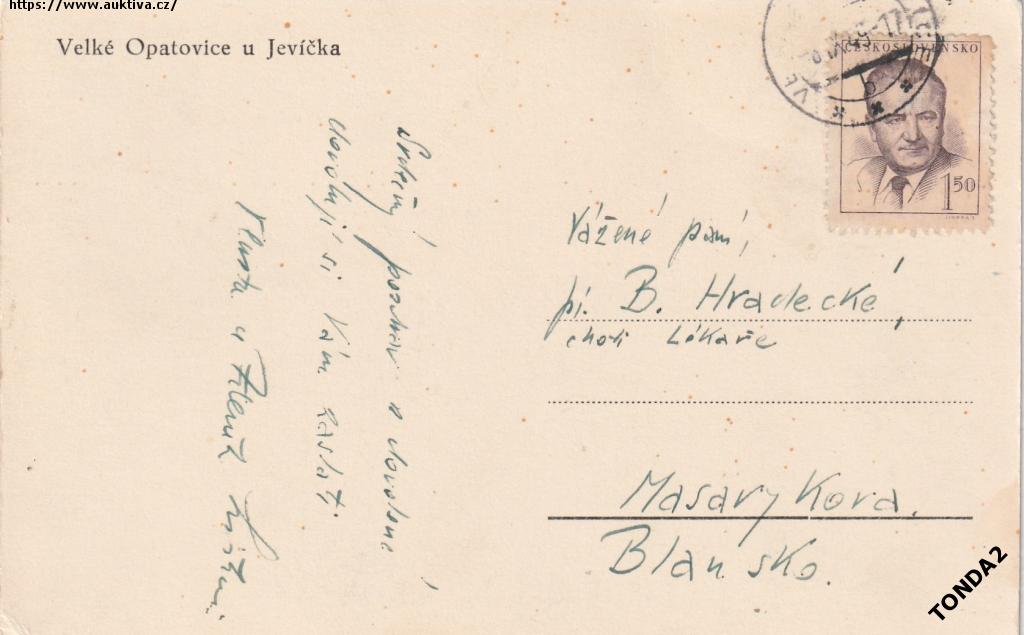 https://www.auktiva.cz/
Velké Opatovice u Jevíčka
ČESKOSLOVENSKO
1 50
Srdečný pozdrav z dovolené
dovolují si Vám zaslat.
Vlasta a Zdeněk
Vážené paní,
pí. B. Hradecké,
choti lékaře
Masarykova.
Blansko.
TONDA2